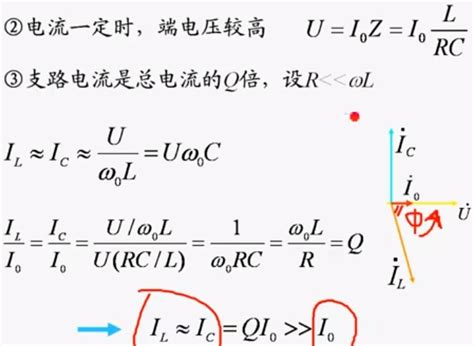 ②电流一定时，端电压较高 U = I₀Z = I₀ L/RC
③支路电流是总电流的Q倍，设R<<ωL
I_L ≈ I_C ≈ U/ω₀L = Uω₀C
İ_C
İ₀
U̇
İ_L
I_L/I₀ = I_C/I₀ = U/ω₀L / U(RC/L) = 1/ω₀RC = ω₀L/R = Q
I_L ≈ I_C = QI₀ >> I₀